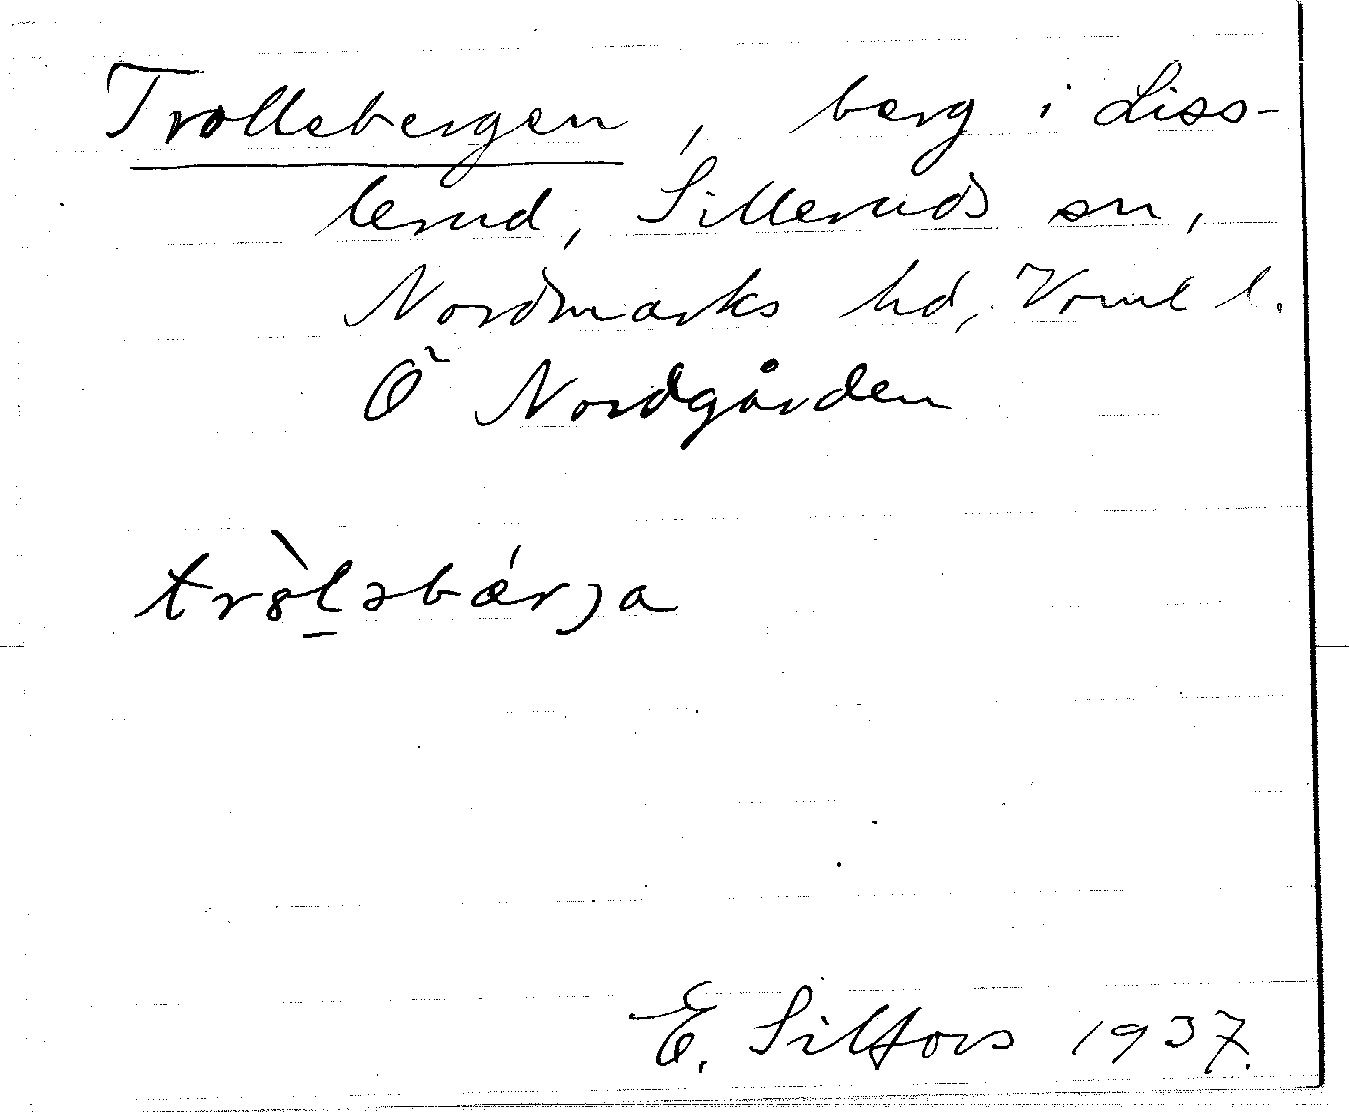 Trollebergen, berg i Liss-
lerud, Silleruds sn,
Nordmarks hd, Vrml l.
Ö Nordgården
trò̀l̠əbǽrja
E. Silfors 1937.